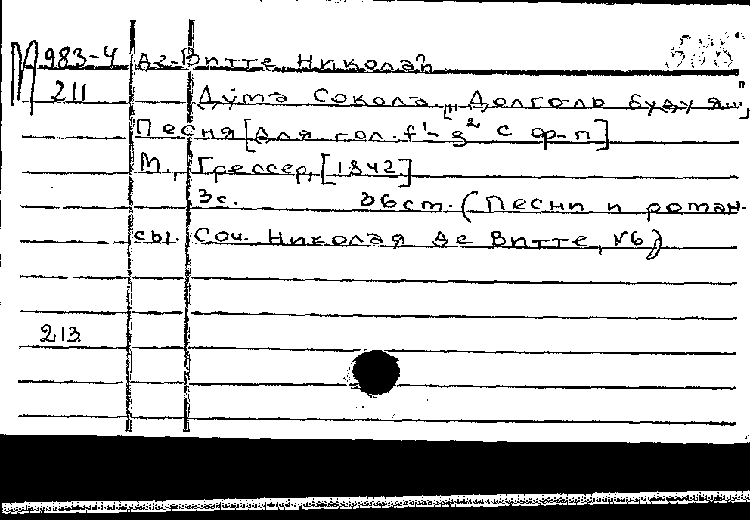 М 983-4 Де-Витте, Николай
211 Дума Сокола. ["Долголь буду я..."]
Песня [для гол. f¹-g² с ф-п]
М., Грессер, [1842]
3с. 36 ст. (Песни и роман-
сы. Соч. Николая де Витте, №6)
213